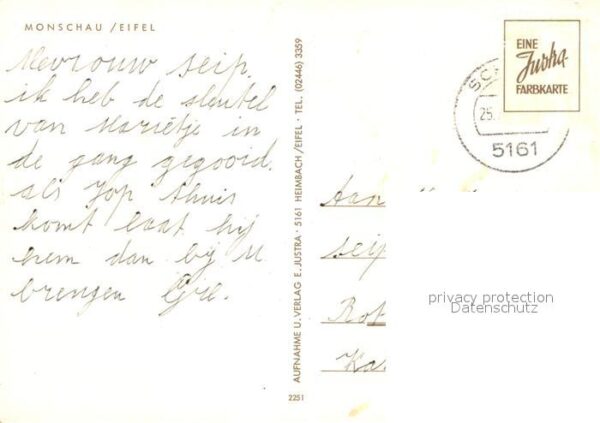 MONSCHAU /EIFEL
Mevrouw Seip,
ik heb de sleutel
van Marietje in
de gang gegooid.
als Jop thuis
komt laat hij
hem dan bij U
brengen
AUFNAHME U. VERLAG E. JUSTRA · 5161 HEIMBACH/EIFEL · TEL. (02446) 3359
2251
EINE
Justra-
FARBKARTE
SC
25.
5161
Aan
Seip
Rot
Ka
privacy protection
Datenschutz